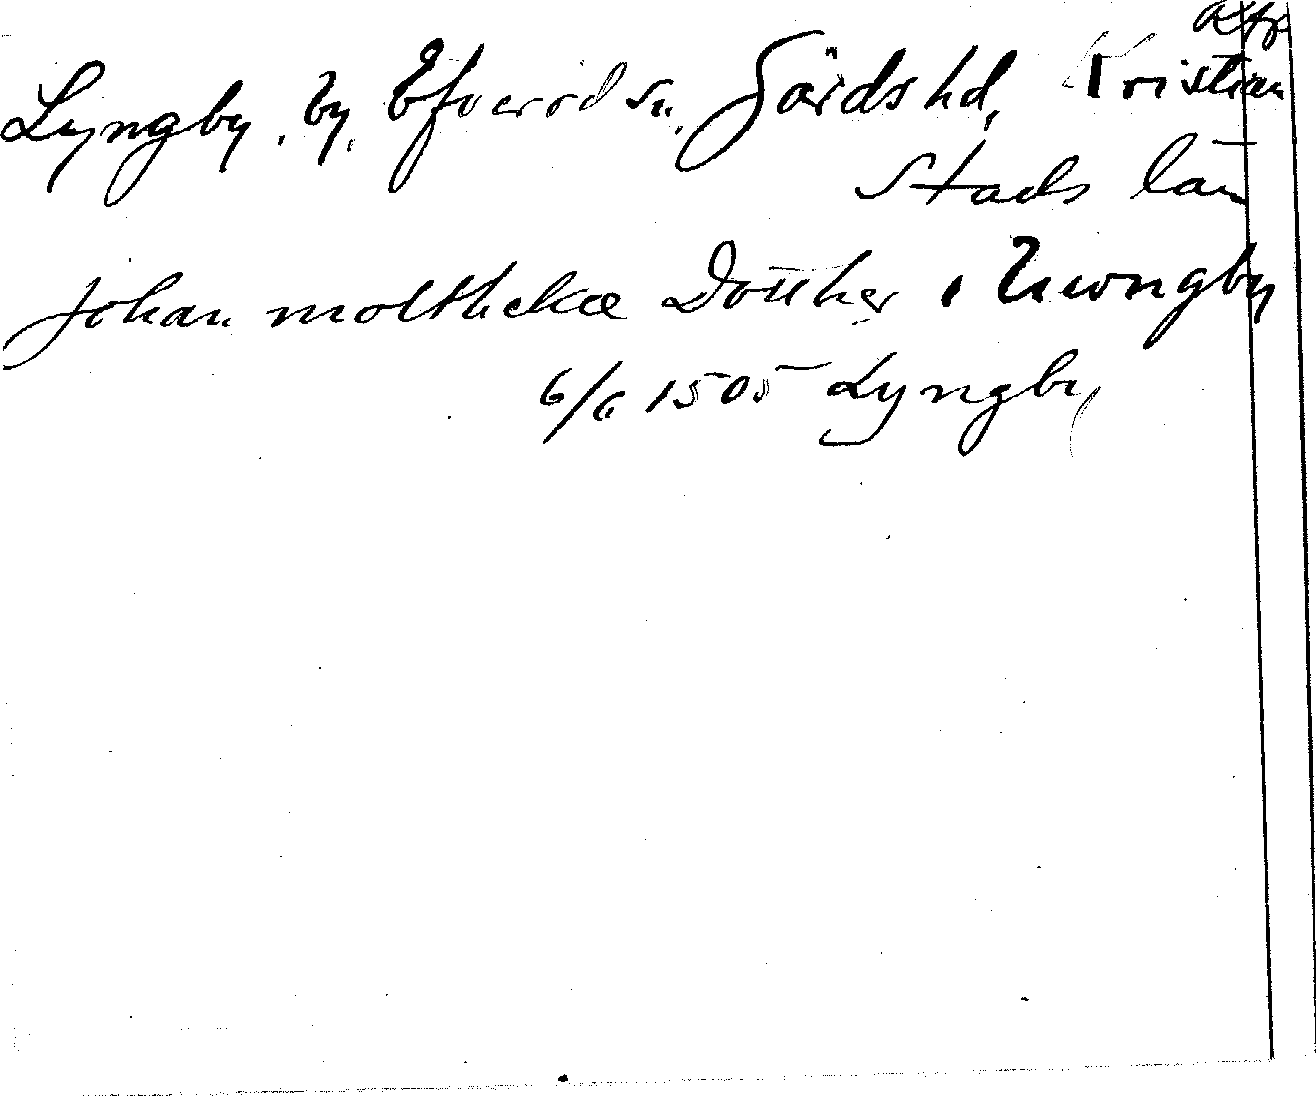 Lyngby, by, Efveröd sn, Gärds hd, Kristian
stads län
Johan molthekæ Dotther i
6/6 1505 Lyngby